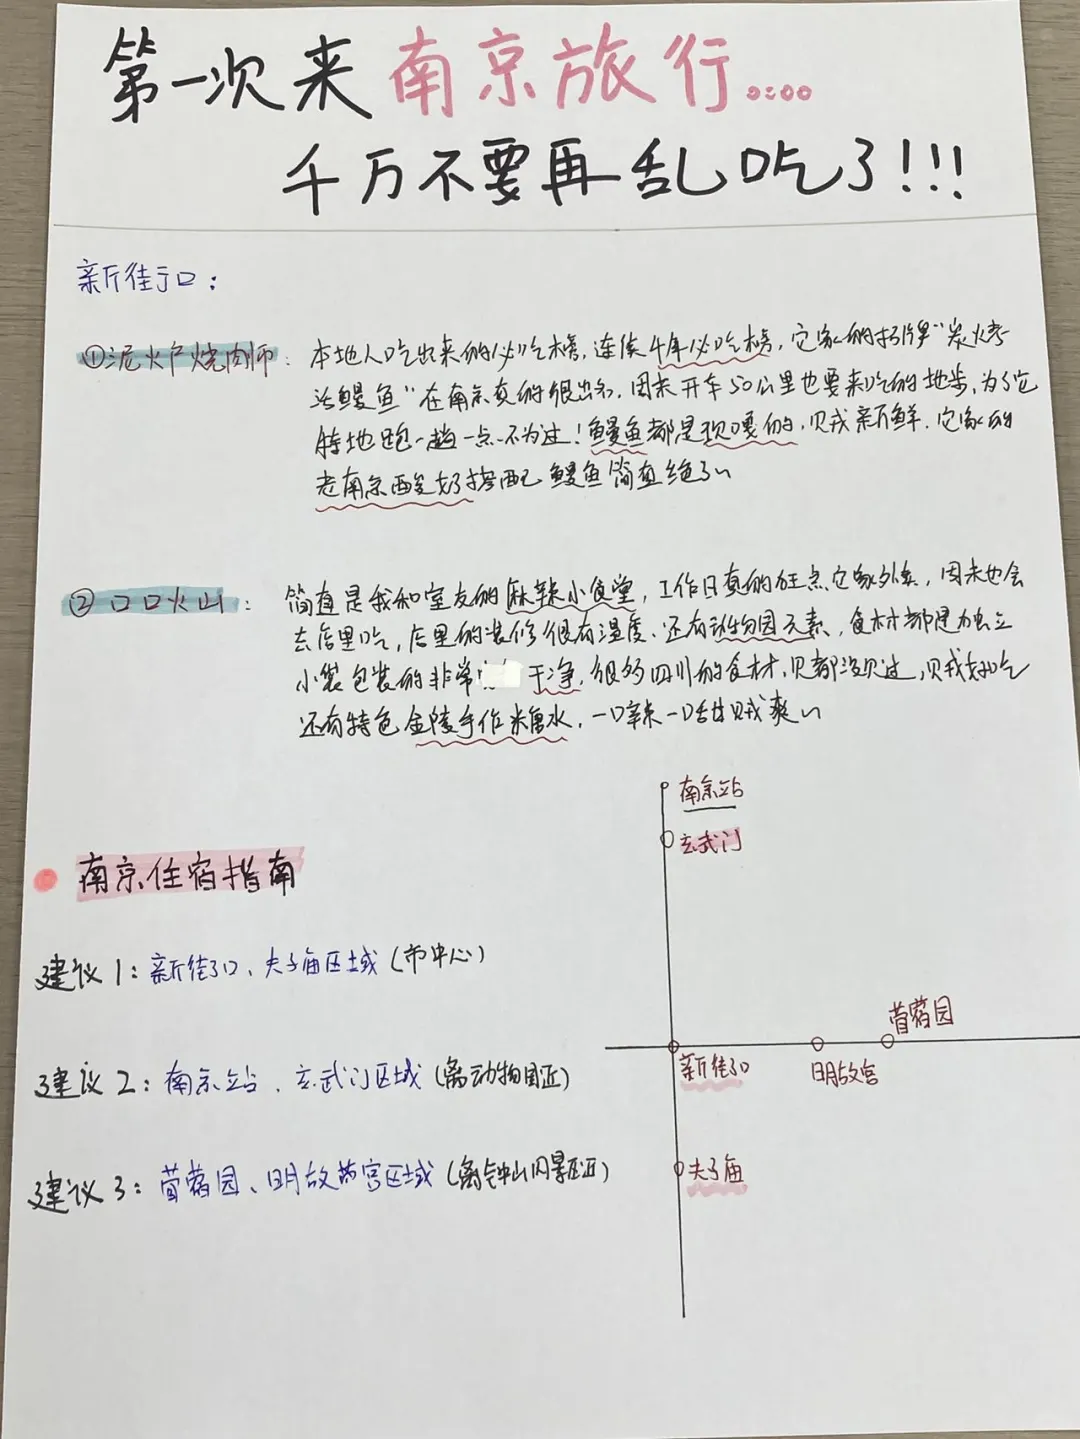 第一次来南京旅行。:。。
千万不要再乱吃了!!!
新街口:
①泥炉烧肉师:本地人吃出来的必吃榜,连续4年必吃榜,它家的招牌“炭烤
活鳗鱼”在南京真的很出名,周末开车50公里也要来吃的地步,为了它
特地跑一趟一点不为过!鳗鱼都是现嘎的,贝戎新鲜.它家的
老南京酸奶搭配鳗鱼简直绝了~
②口口火山:简直是我和室友的麻辣小食堂,工作日真的狂点它家外卖,周末也会
去店里吃,店里的装修很有温度、还有动物园元素,食材都是独立
小袋包装的非常干净,很多四川的食材,见都没见过,贼好吃
还有特色金陵手作糖水,一口辣一口甜贼爽~
南京站
玄武门
南京住宿指南
建议1:新街口、夫子庙区域(市中心)
苜蓿园
新街口
明故宫
建议2:南京站、玄武门区域(离动物园近)
建议3:苜蓿园、明故宫区域(离钟山风景区近)
夫子庙